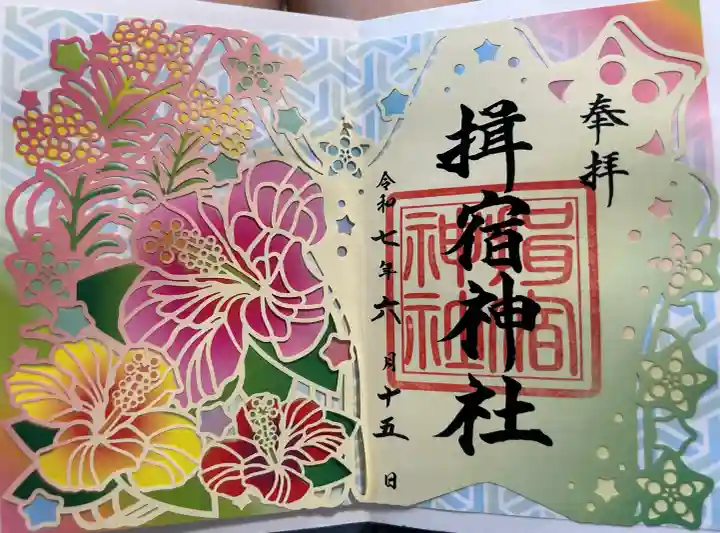 奉拝
揖宿神社
揖宿
神社
令和七年六月十五日